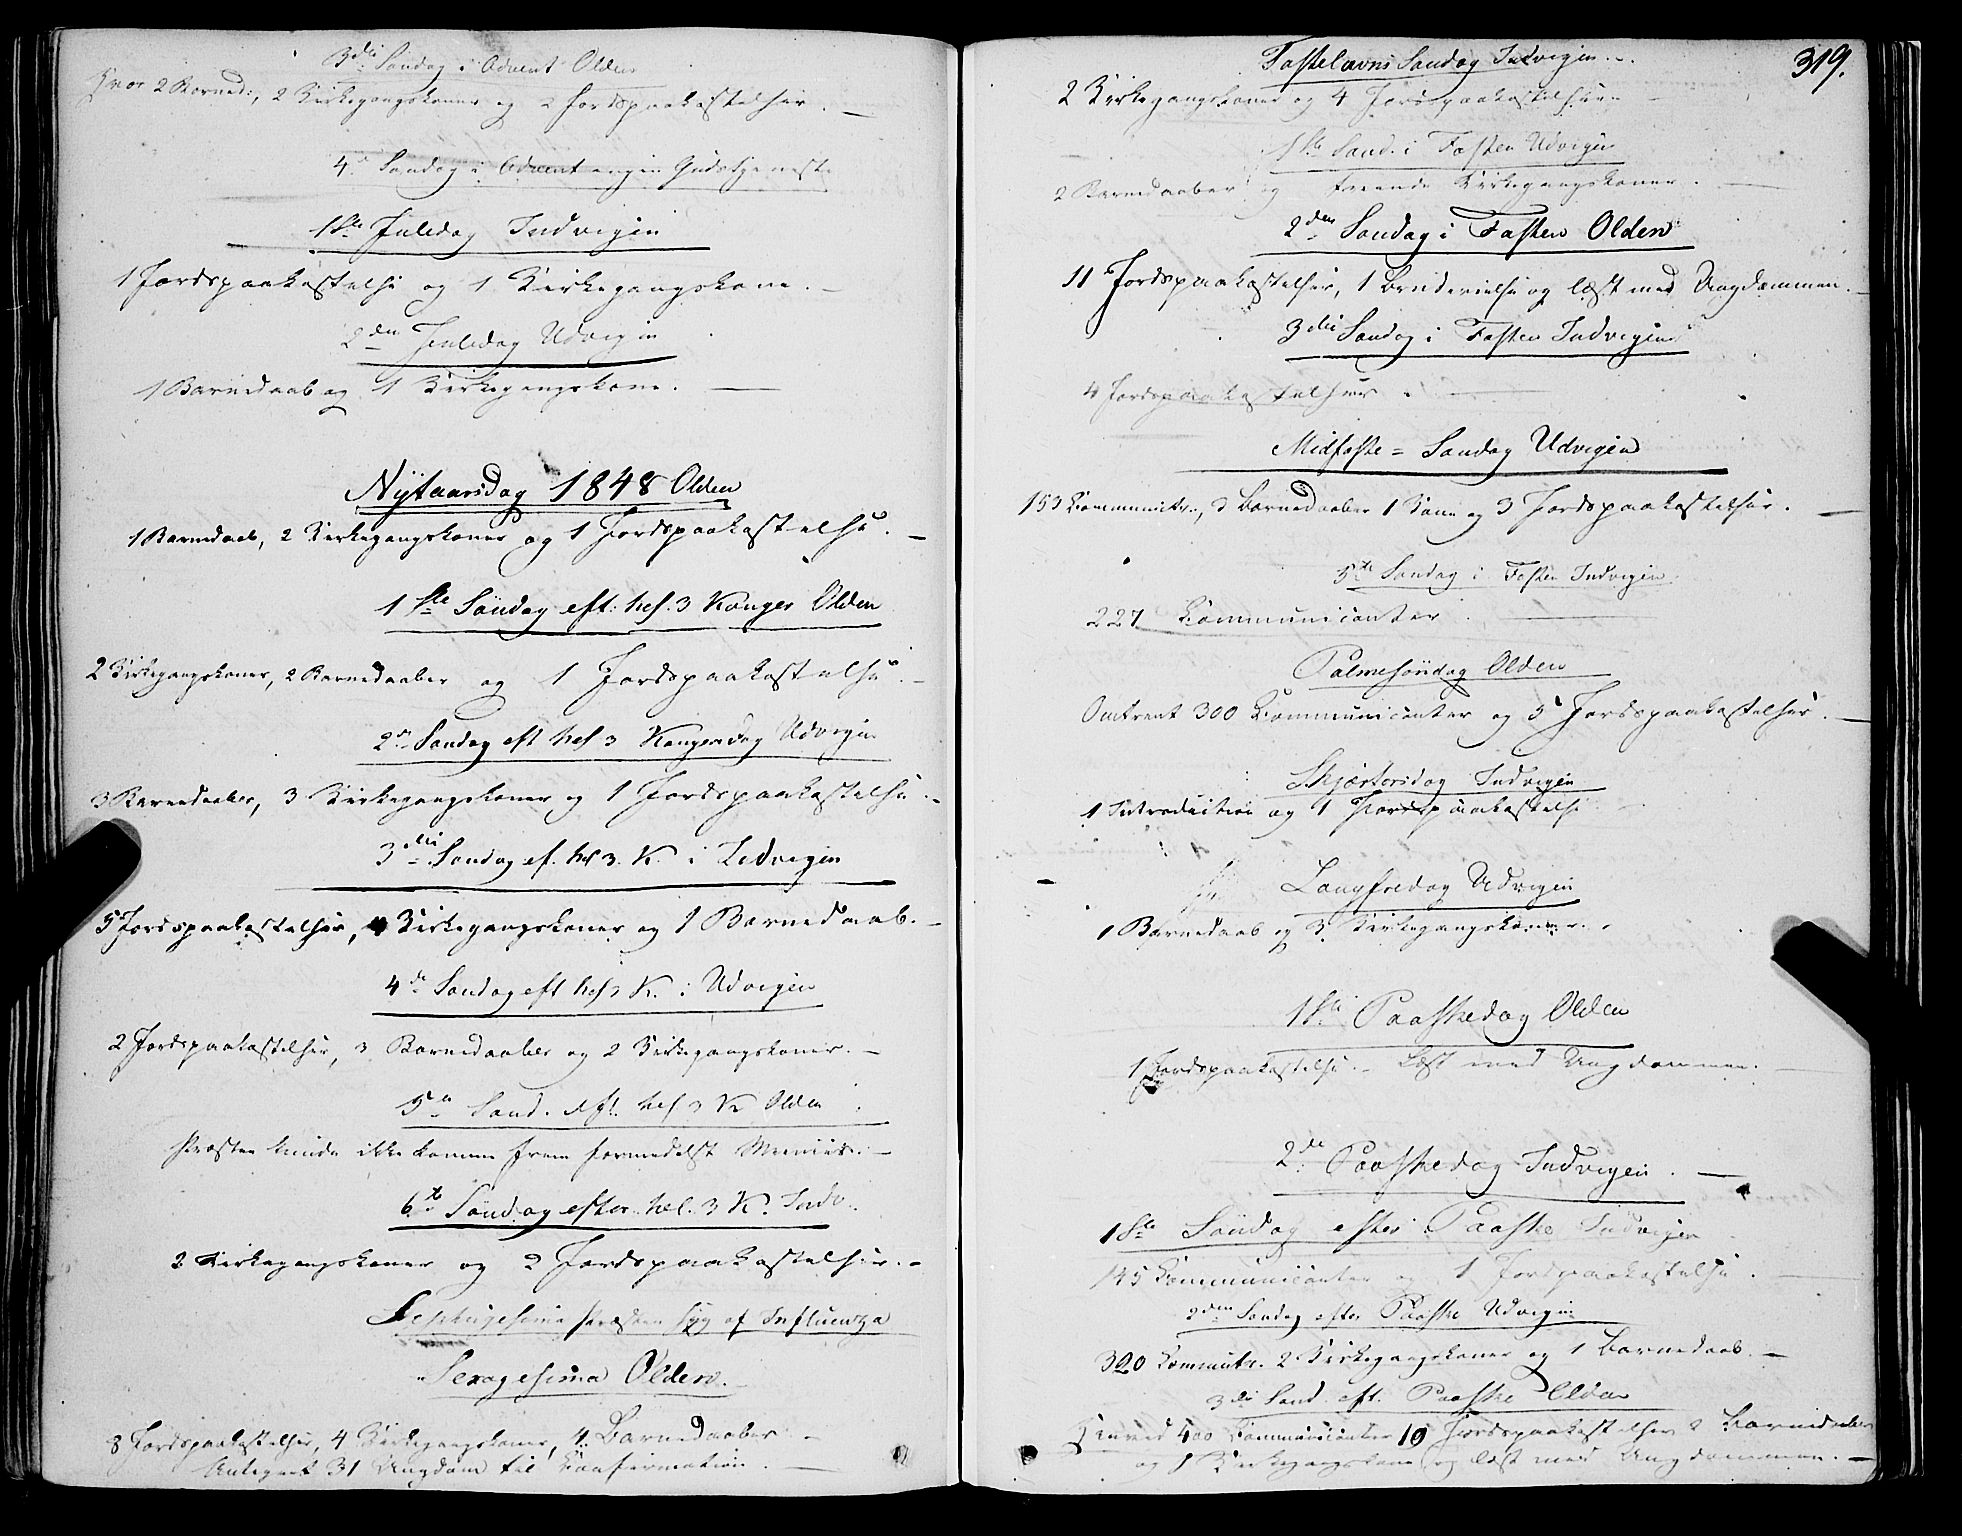 3die Søndag i Advent Olden
Hvor 2 Barned:, 2 Kirkegangskoner og 2 Jordspaakastelser. —
4de Søndag i Advent ingen Gudstjeneste
1ste Juledag Indvigen
1 Jordspaakastelse og 1 Kirkegangskone. —
2den Juledag Udvigen
1 Barnedaab og 1 Kirkegangskone. —
Nytaarsdag 1848 Olden
1 Barnedaab, 2 Kirkegangskoner og 1 Jordspaakastelse. —
1ste Søndag eft: hel. 3 Konger Olden
2 Kirkegangskoner, 2 Barnedaaber og 1 Jordspaakastelse. —
2den Søndag eft hel 3 Kongerdag Udvigen
3 Barnedaaber, 3 Kirkegangskoner og 1 Jordspaakastelse. —
3die Søndag ef. hel 3. K. i Indvigen
5 Jordspaakastelser, 4 Kirkegangskoner og 1 Barnedaab. —
4de Søndag eft hel 3 K. i Udvigen
2 Jordspaakastelser, 3 Barnedaaber og 2 Kirkegangskoner. —
5te Sønd. eft. hel 3 K Olden
Præsten kunde ikke komme frem formedelst Meeniis. —
6te Søndag efter hel. 3 K. Indv.
2 Kirkegangskoner og 2 Jordspaakastelser. —
Septuagesima Præsten syg af Influenza
Sexagesima Olden.
8 Jordspaakastelser, 4 Kirkegangskoner, 4 Barnedaaber —
Antegnet 31 Ungdom til Confirmation. —
319.
Fastelavns Søndag Indvigen. —
2 Kirkegangskoner og 4 Jordspaakastelser. —
1ste Sønd. i Fasten Udvigen
2 Barnedaaber og trende Kirkegangskoner. —
2den Søndag i Fasten Olden
11 Jordspaakastelser, 1 Brudevielse og læst med Ungdommen. —
3die Søndag i Fasten Indvigen
4 Jordspaakastelser. —
Midfaste = Søndag Udvigen
153 Communictr., 3 Barnedaaber 1 Kone og 3 Jordspaakastelser. —
5te Søndag i Fasten Indvigen
227 Communicanter. —
Palmesøndag Olden
Omtrent 300 Communicanter og 5 Jordspaakastelser. —
Skjærtorsdag Indvigen
1 Introduction og 1 Jordspaakastelse
Langfredag Udvigen
1 Barnedaab og 3 Kirkegangskoner. .
1ste Paaskedag Olden
1 Jordspaakastelse. – Læst med Ungdommen. —
2den Paaskedag Indvigen. —
1ste Søndag efter Paaske Indvigen
145 Communicanter og 1 Jordspaakastelse. —
2den Søndag efter Paaske Udvigen
320 Communctr. 2 Kirkegangskoner og 1 Barnedaab. —
3die Sønd. eft. Paaske Olden
Henved 400 Communicanter 10 Jordspaakastelser 2 Barnedaaber
og 1 Kirkegangskone og læst med Ungdommen. —